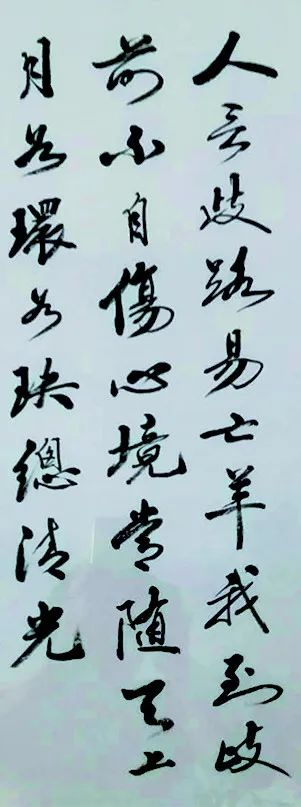 人言歧路易亡羊我到歧
前不自傷心境常隨天上
月如環如玦總清光